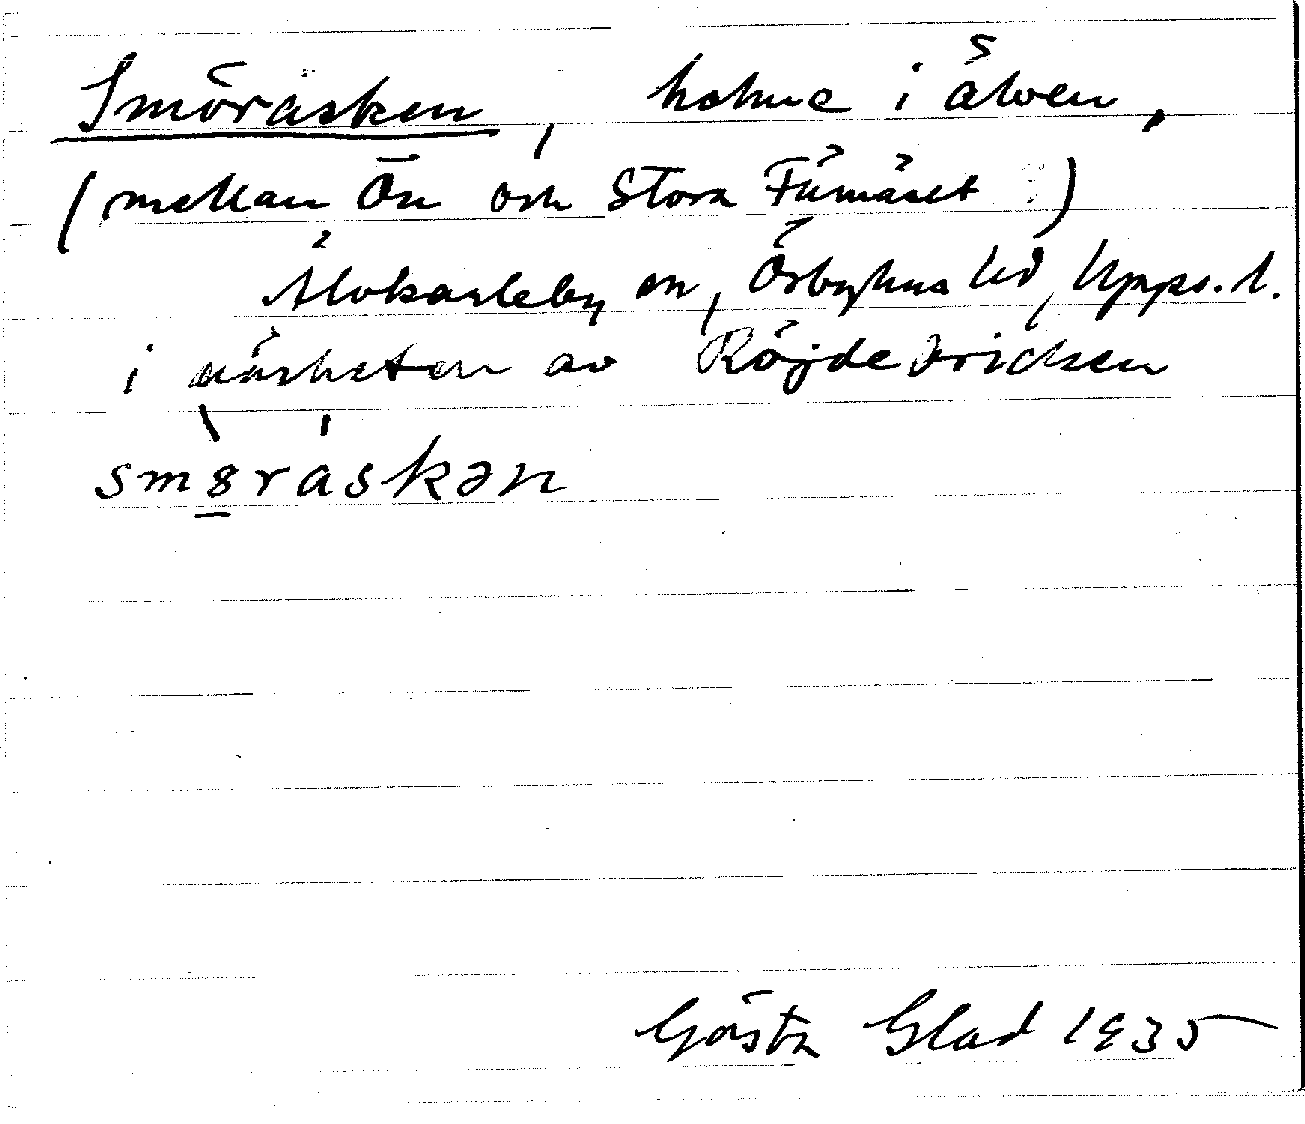 Smörasken, holme i älven,
(mellan Ön och Stora Fårnäset)
Älvkarleby sn, Örbyhus hd, Upps. l.
i närheten av Röjdebricken
smɵraskən
Gösta Glad 1935